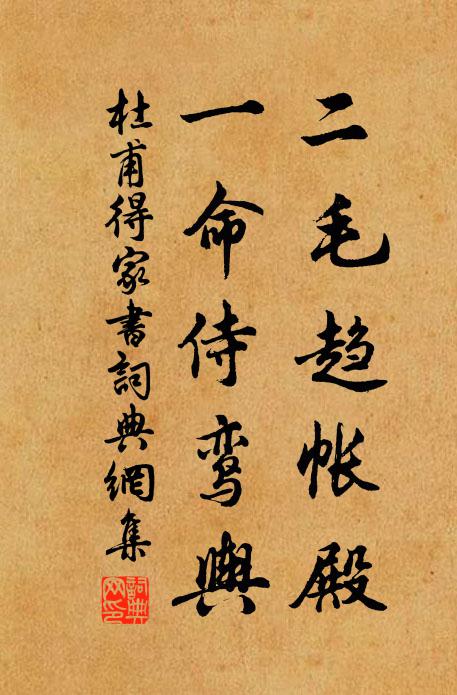 二毛趋帐殿
一命侍鸾舆
杜甫得家書詞典網集
詞典网印